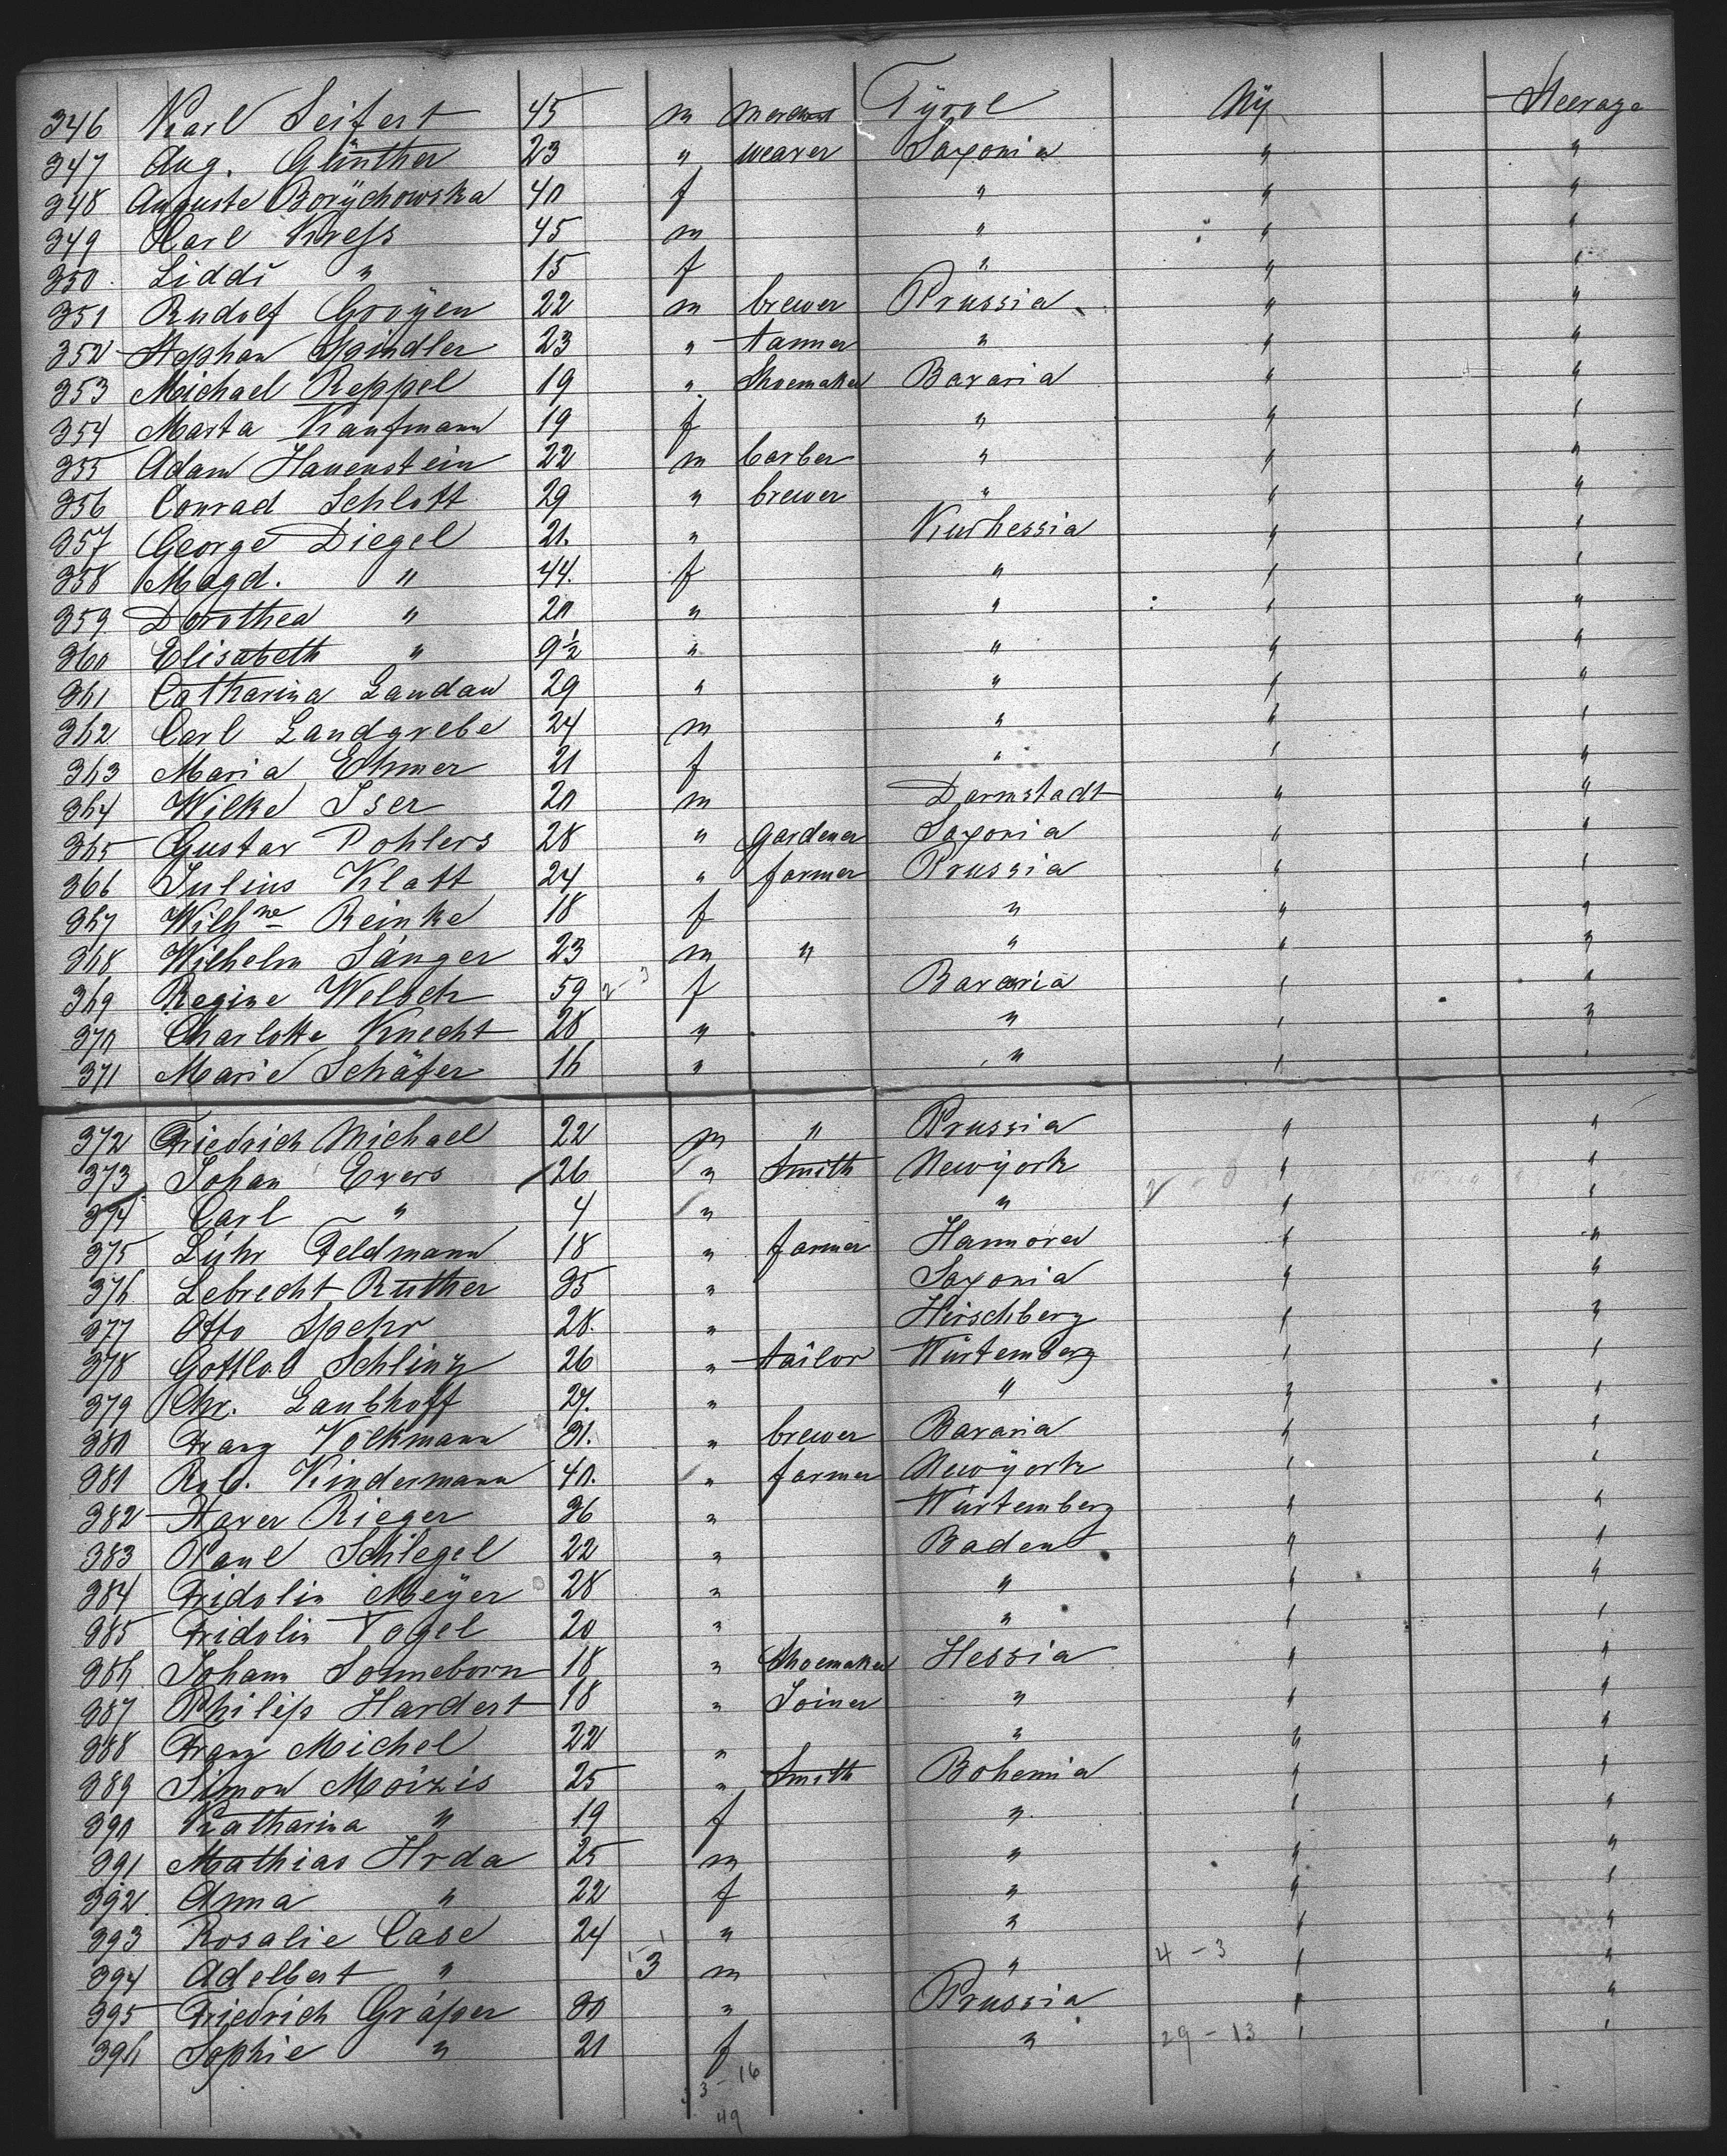 346 Karl Seifert 45 m merchant Tyrol NY Steerage
347 Aug. Günther 23 " weaver Saxonia " "
348 Auguste Borÿchowska 40 f " " "
349 Karl Kress 45 m " " "
350. Liddi " 15 f " " "
351 Rudolf Groÿen 22 m brewer Prussia " "
352 Stephan Spindler 23 " tanner " " "
353 Michael Reppel 19 " Shoemaker Bavaria " "
354 Marta Kaufmann 19 f " " "
355 Adam Hauenstein 22 m barber " " "
356 Conrad Schlott 29 " brewer " " "
357 George Diegel 21. " Kurhessia " "
358 Magd. " 44. f " " "
359 Dorothea " 20 " " " "
360 Elisabeth " 9½ " " " "
361 Catharina Landau 29 " " " "
362 Carl Landgrebe 24 m " " "
363 Maria Ehmer 21 f " " "
364 Wilke Iser 20 m Darmstadt " "
365 Gustav Pohlers 28 " gardener Saxonia " "
366 Julius Klatt 24 " farmer Prussia " "
367 Wilhne Reinke 18 f " " "
368 Wilhelm Sänger 23 m " " " "
369 Regine Welsch 59 f Bavaria " "
370 Charlotte Knecht 28 " " " "
371 Marie Schäfer 16 " " " "
372 Friedrich Michael 22 m " Prussia " "
373 Johan Evers 26 " Smith Newÿork " "
374 Carl " 4 " " " "
375 Lühr Feldmann 18 " farmer Hannover " "
376 Lebrecht Rüther 35 " Saxonia " "
377 Otto Spehr 28. " Hirschberg " "
378 Gottlob Schlinz 26 " tailor Würtemberg " "
379 Chr. Laubhoff 27. " " " "
380 Franz Volkmann 31. " brewer Bavaria " "
381 Rob. Kindermann 40. " farmer Newÿork " "
382 Xaver Rieger 36 " Würtemberg " "
383 Paul Schlegel 22 " Baden " "
384 Fridolin Meÿer 28 " " " "
385 Fridolin Vogel 20 " " " "
386 Johann Sonneborn 18 " Shoemaker Hessia " "
387 Philip Hardert 18 " Joiner " " "
388 Franz Michel 22 " " " "
389 Simon Moizis 25 " Smith Bohemia " "
390 Katharina " 19 f " " "
391 Mathias Hrda 25 m " " "
392. Anna " 22 f " " "
393 Rosalie Case 24 " " " "
394 Adelbert " 3 m " 4 - 3 " "
395 Friedrich Gräper 30 " Prussia " "
396 Sophie " 21 f " 29 - 13 " "
3 - 16
49